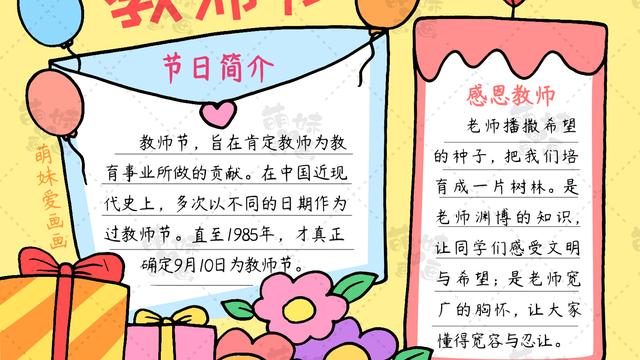 教师节
节日简介
教师节，旨在肯定教师为教
育事业所做的贡献。在中国近现
代史上，多次以不同的日期作为
过教师节。直至1985年，才真正
确定9月10日为教师节。
感恩教师
老师播撒希望
的种子，把我们培
育成一片树林。是
老师渊博的知识，
让同学们感受文明
与希望；是老师宽
广的胸怀，让大家
懂得宽容与忍让。
萌妹爱画画